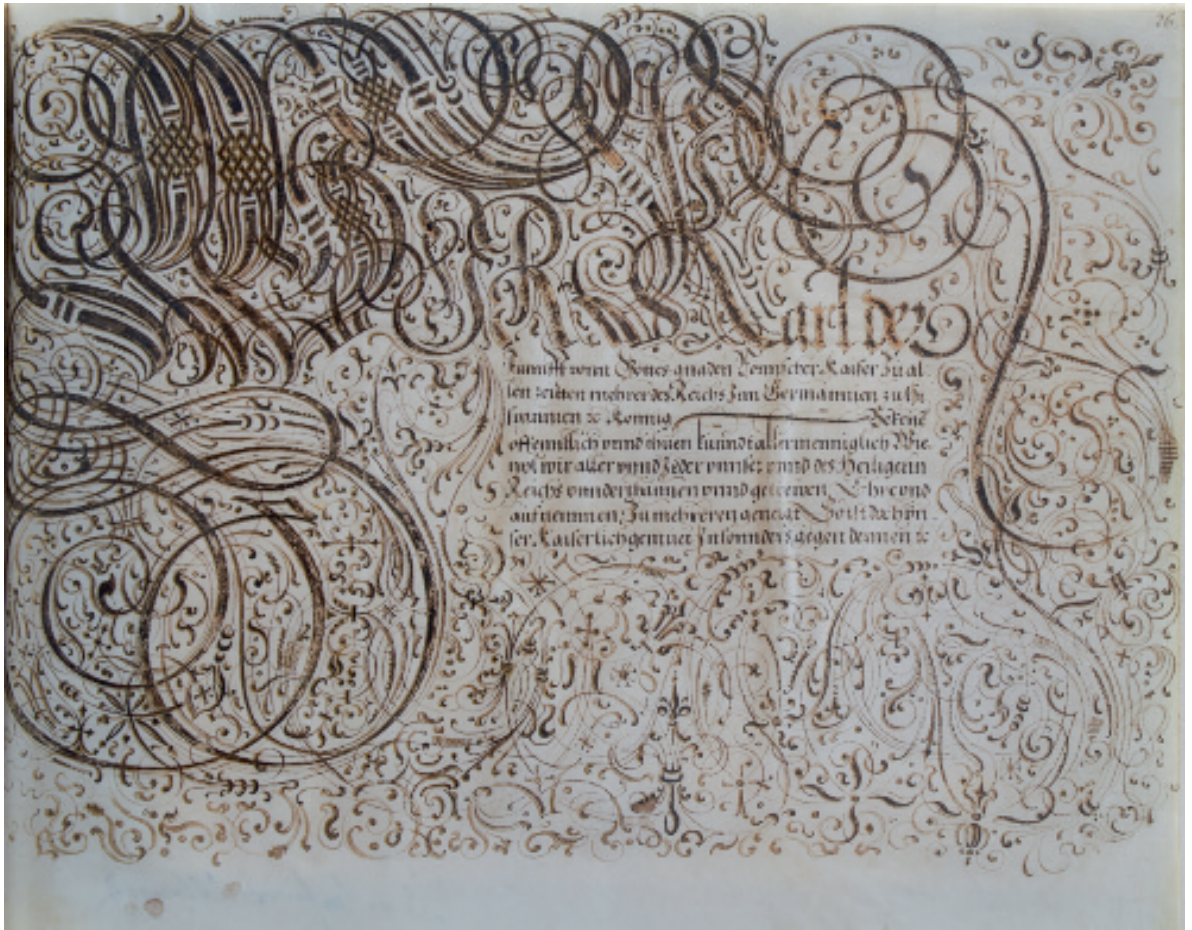 26
WIR Karl der
funfft vonn Gottes gnaden Romischer Kaiser Zu al
len zeitten mehrer des Reichs Inn Germannien zu Hi
spannien ꝛc Konnig Bekenne
offenntlich vnnd thuen kundt allermenniglich Wie
wol wir aller vnnd Jeder vnnser vnnd des Heiligenn
Reichs vnnderthannen vnnd getrewen Ehr vnd
aufnemmen, Zu mehreren geneigt So ist doch vn
ser Kaiserlich gemuet Insonnders gegen dennen ꝛc